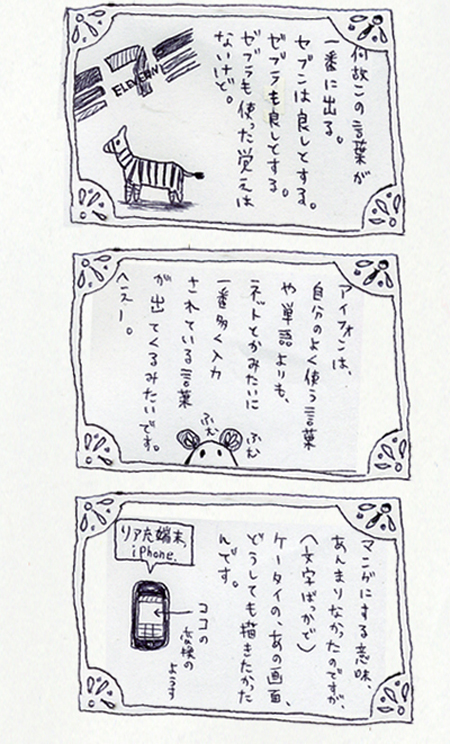 何故この言葉が
一番に出る。
セブンは良しとする。
ゼブラも良しとする。
ゼブラも使った覚えは
ないけど。
7
ELEVEN
アイフォンは、
自分のよく使う言葉
や単語よりも、
ネットとかみたいに
一番多く入力
されている言葉
が出てくるみたいです。
へえー。
ふむ
ふむ
マンガにする意味、
あんまりなかったのですが、
(文字ばっかで)
ケータイの、あの画面、
どうしても描きたかった
んです。
リアル端末、
iPhone.
ココの
変換の
ようす